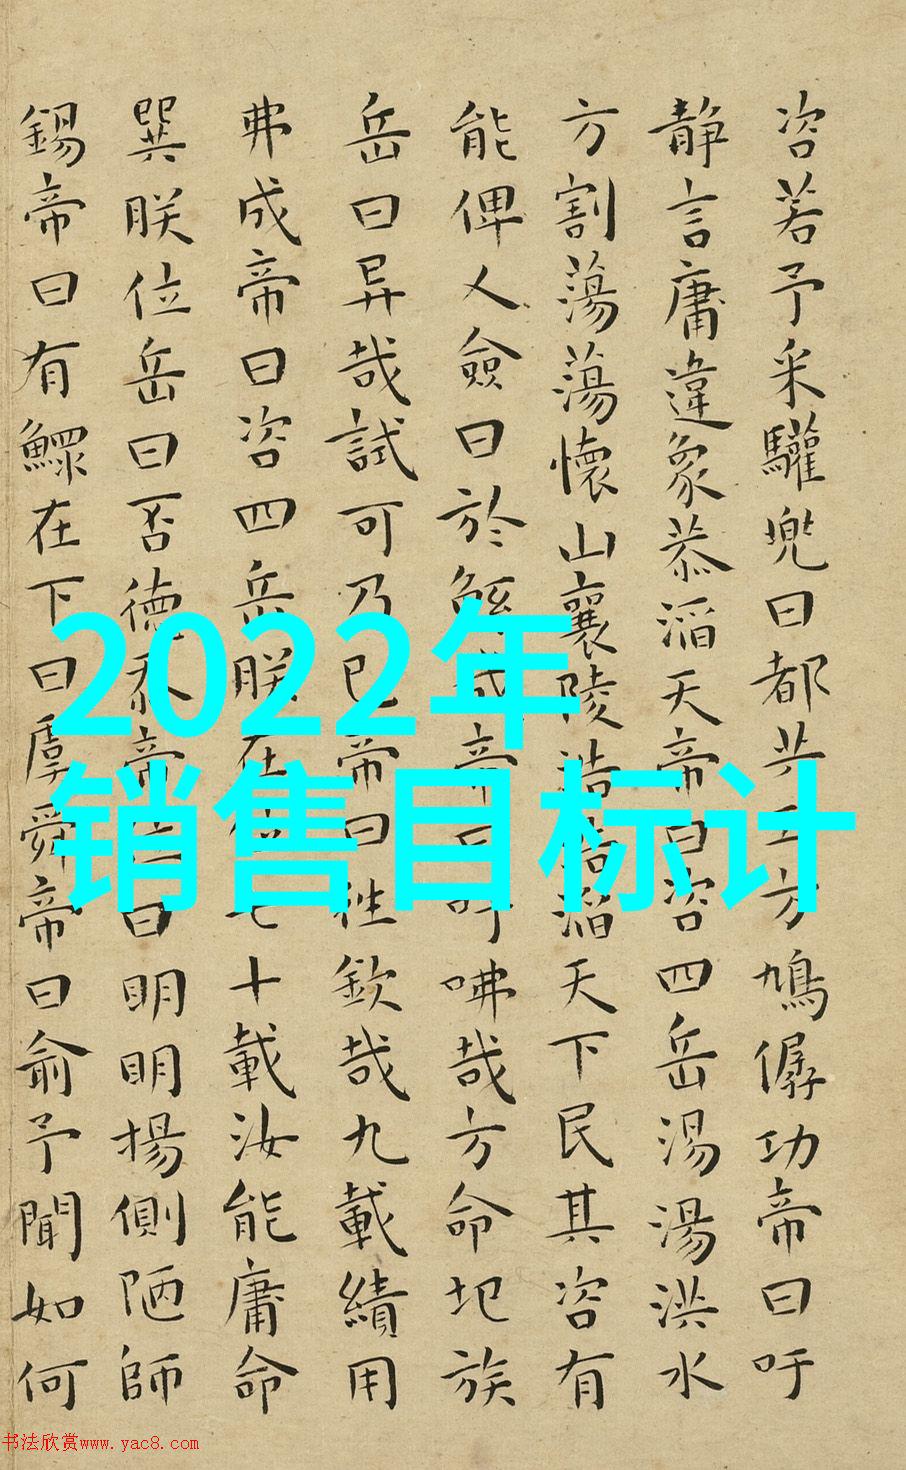 咨若予采驩兜曰都共工方鳩僝功帝曰吁
静言庸違象恭滔天帝曰咨四岳湯湯洪水
方割蕩蕩懷山襄陵浩浩滔天下民其咨有
能俾人僉曰於鯀哉帝曰吁咈哉方命圮族
岳曰异哉試可乃已帝曰往欽哉九載績用
弗成帝曰咨四岳朕在位七十載汝能庸命
巽朕位岳曰否德忝帝位曰明明揚側陋師
錫帝曰有鰥在下曰虞舜帝曰俞予聞如何
2022年
销售目标计
书法欣赏www.yac8.com